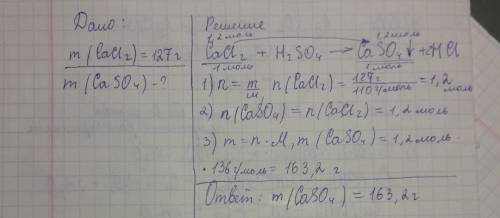 Дано:
m(CaCl₂) = 127г
m(CaSO₄) - ?
Решение
1,2 моль 1,2 моль
CaCl₂ + H₂SO₄ → CaSO₄↓ + 2HCl
1 моль 1 моль
1) n = m/M, n(CaCl₂) = 127г/110г/моль = 1,2 моль
2) n(CaSO₄) = n(CaCl₂) = 1,2 моль
3) m = n · M, m(CaSO₄) = 1,2 моль ·
· 136г/моль = 163,2 г
Ответ: m(CaSO₄) = 163,2г